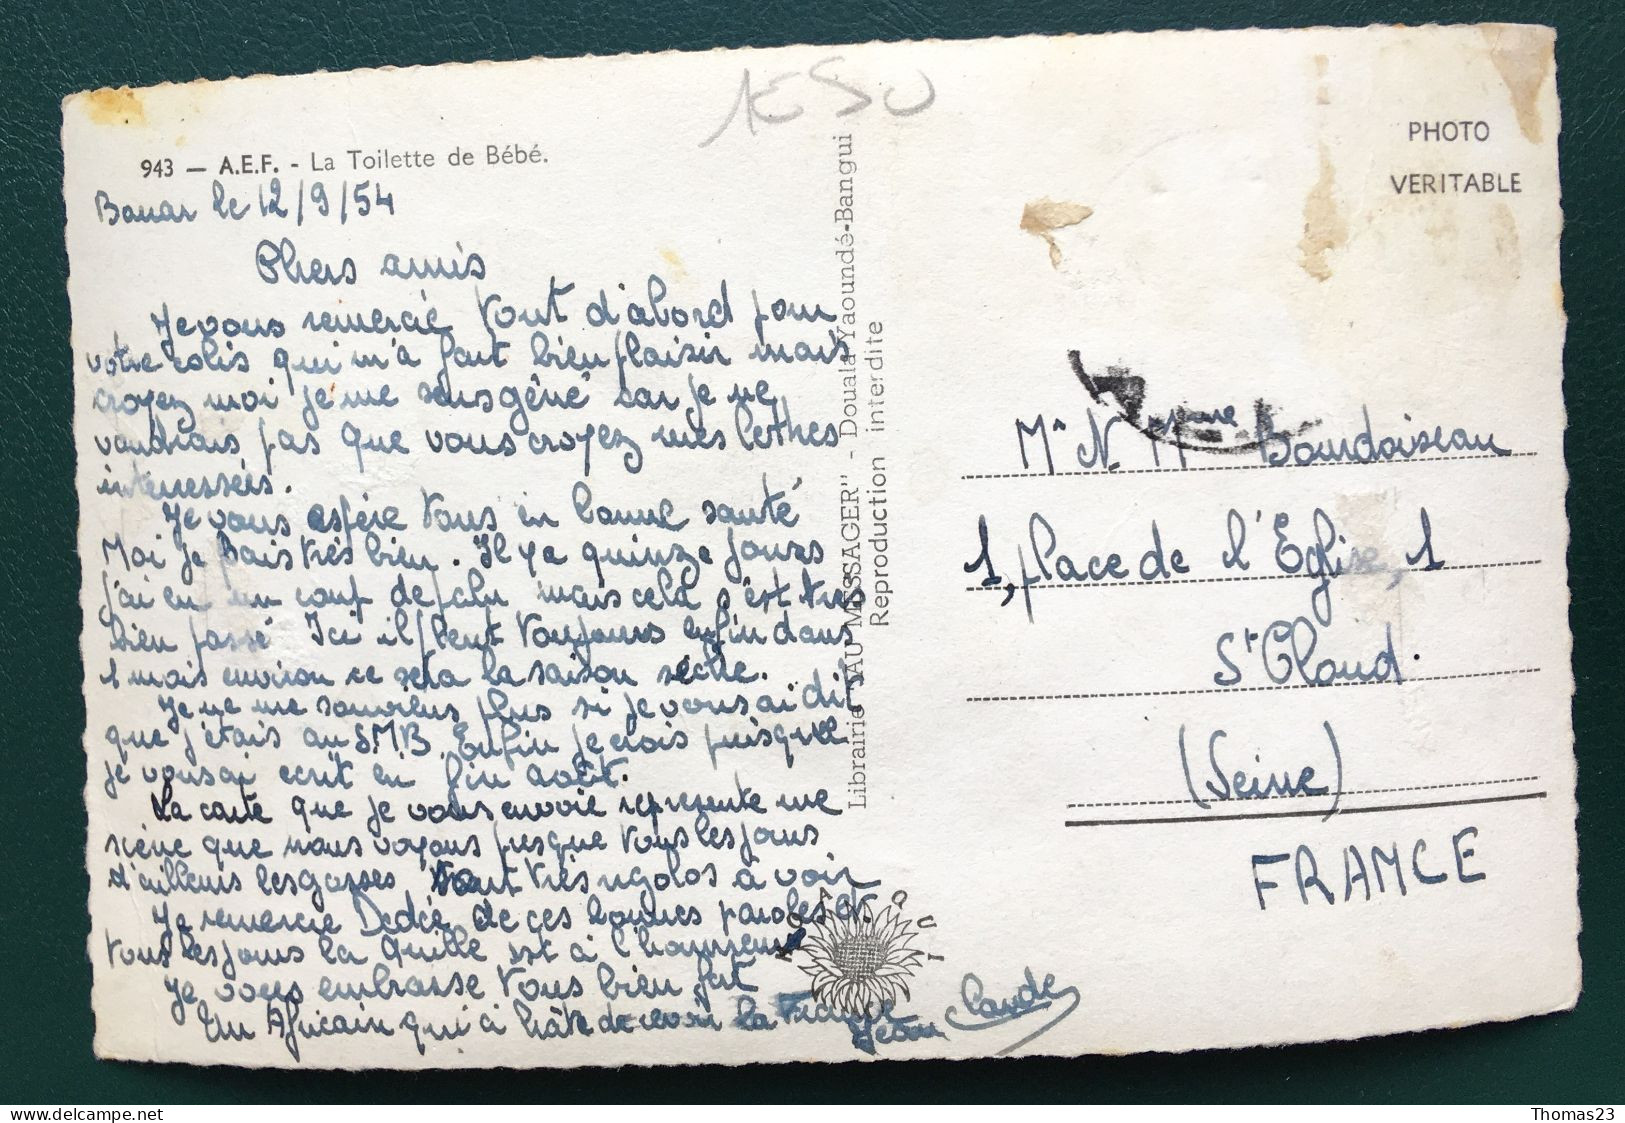 943 — A.E.F. - La Toilette de Bébé.
Bouar le 12/9/54
Chers amis
Je vous remercie tout d'abord pour
votre colis qui m'a fait bien plaisir mais
croyez moi je me sens gêné car je ne
voudrais pas que vous croyez mes lettres
interessées.
Je vous espère tous en bonne santé
Moi je vais très bien. Il y a quinze jours
j'ai eu un coup de palu mais cela s'est très
bien passé Ici il pleut toujours enfin dans
1 mois environ ce sera la saison sèche.
Je ne me souviens plus si je vous ai dit
que j'étais au S.M.B. Enfin je crois puisque
je vous ai ecrit en fin août.
La carte que je vous envoie represente une
scène que nous voyons presque tous les jours
d'ailleurs les gosses sont très rigolos à voir
Je remercie Dedée de ces bonnes paroles et
tous les jours la Quille est à l'honneur
Je vous embrasse tous bien fort
Un Africain qui a hâte de revoir la France
Jean Claude
Librairie "AU MESSAGER" - Douala-Yaoundé-Bangui
Reproduction interdite
HOA-QUI
PHOTO
VERITABLE
Mr N. Mme Bourdoiseau
1, place de l'Eglise, 1
St Cloud.
(Seine)
FRANCE
delcampe.net
Thomas23